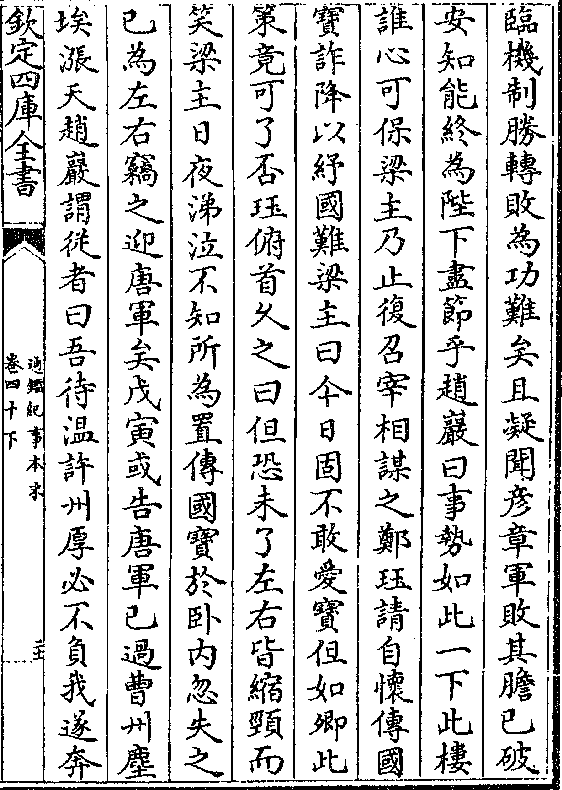 臨機制勝轉敗為功難矣且凝聞彦章軍敗其膽已破
安知能終為陛下盡節乎趙巖曰事勢如此一下此樓
誰心可保梁主乃止復召宰相謀之鄭珏請自懷傳國
寳詐降以紓國難梁主曰今日固不敢愛寳但如卿此
策竟可了否珏俯首久之曰但恐未了左右皆縮頸而
笑梁主日夜涕泣不知所為置傳國寳於卧内忽失之
已為左右竊之迎唐軍矣戊寅或告唐軍已過曹州塵
埃漲天趙巖謂從者曰吾待温許州厚必不負我遂奔
欽定四庫全書
通鑑紀事本末
卷四十下